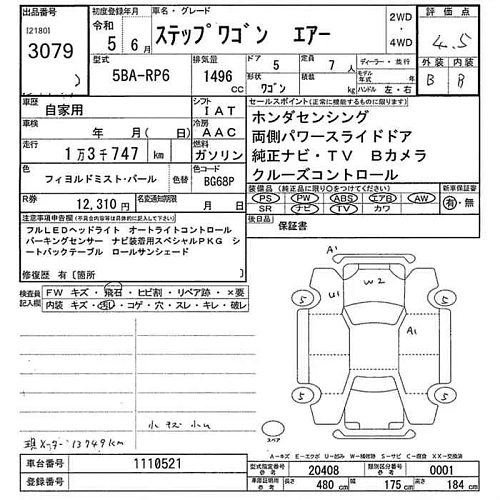 出品番号
[21801
3079
初度登録年月
令和 5 年 6 月
車名・グレード
ステップワゴン エアー
2WD
・
4WD
評価点
4.5
型式
5BA-RP6
排気量
1496 cc
ドア
5
定員
7 人
形状
ワゴン
積載量
kg
ディーラー・並行
モデル年式 年
ハンドル 左・右
外装 内装
B B
車歴
自家用
シフト
I A T
セールスポイント(正常に機能するものに限ります)
ホンダセンシング
車検
年 月( 日)
冷房
A A C
両側パワースライドドア
走行
1万3千747 km
燃料
ガソリン
純正ナビ・TV Bカメラ
色
フィヨルドミスト・パール
色替
カラーNo.
BG68P
クルーズコントロール
R券
12,310 円
名義変更期限
月 日
装備品(純正品に限り○をつけます)
PS PW ABS エアB AW
SR ナビ TV カワ
新車保証書
有・無
注意事項申告欄
フルLEDヘッドライト オートライトコントロール
パーキングセンサー ナビ装着用スペシャルPKG シ
ートバックテーブル ロールサンシェード
後日品
保証書
修復歴 有[箇所
検査員記入欄
FW キズ・飛石・ヒビ割・リペア跡・×要
内装 キズ・汚レ・コゲ・穴・スレ・キレ・破レ
A1
U1
W2
A1
5
5
5
5
A1
スペア
小キズ 小凹
現メーター 13749km
A-キズ E-エクボ U-凹み W-補修跡 S-サビ C-腐食 XX-交換済
車台番号
1110521
型式指定番号
20408
類別区分番号
0001
登録番号
長さ 480 cm
幅 175 cm
高さ 184 cm